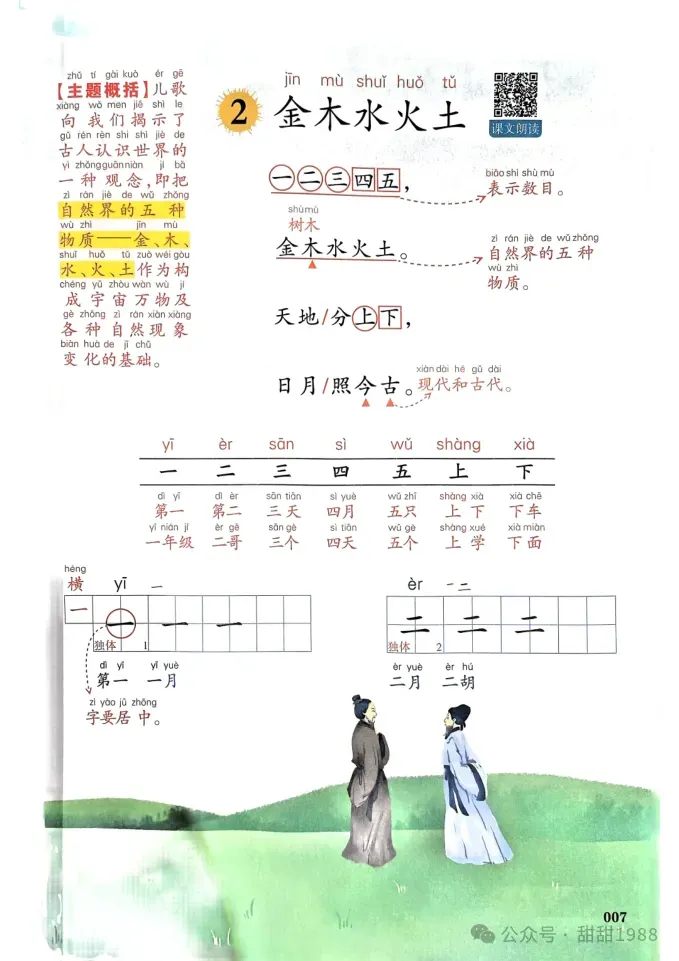 zhǔ tí gài kuò ér gē
【主题概括】儿歌
xiàng wǒ men jiē shì le
向我们揭示了
gǔ rén rèn shi shì jiè de
古人认识世界的
yì zhǒng guān niàn jí bǎ
一种观念,即把
zì rán jiè de wǔ zhǒng
自然界的五种
wù zhì jīn mù
物质——金、木、
shuǐ huǒ tǔ zuò wéi gòu
水、火、土作为构
chéng yǔ zhòu wàn wù jí
成宇宙万物及
gè zhǒng zì rán xiàn xiàng
各种自然现象
biàn huà de jī chǔ
变化的基础。
jīn mù shuǐ huǒ tǔ
2 金木水火土
课文朗读
一二三四五,
biǎo shì shù mù
表示数目。
shù mù
树木
金木水火土。
zì rán jiè de wǔ zhǒng
自然界的五种
wù zhì
物质。
天地/分上下,
日月/照今古。
xiàn dài hé gǔ dài
现代和古代。
yī èr sān sì wǔ shàng xià
一 二 三 四 五 上 下
dì yī dì èr sān tiān sì yuè wǔ zhī shàng xià xià chē
第一 第二 三天 四月 五只 上下 下车
yī nián jí èr gē sān gè sì tiān wǔ gè shàng xué xià miàn
一年级 二哥 三个 四天 五个 上学 下面
héng
横 yī 一
一 一 一 一
独体 1
dì yī yī yuè
第一 一月
zì yào jū zhōng
字要居中。
èr 一 二
二 二 二
独体 2
èr yuè èr hú
二月 二胡
007
公众号·甜甜1988